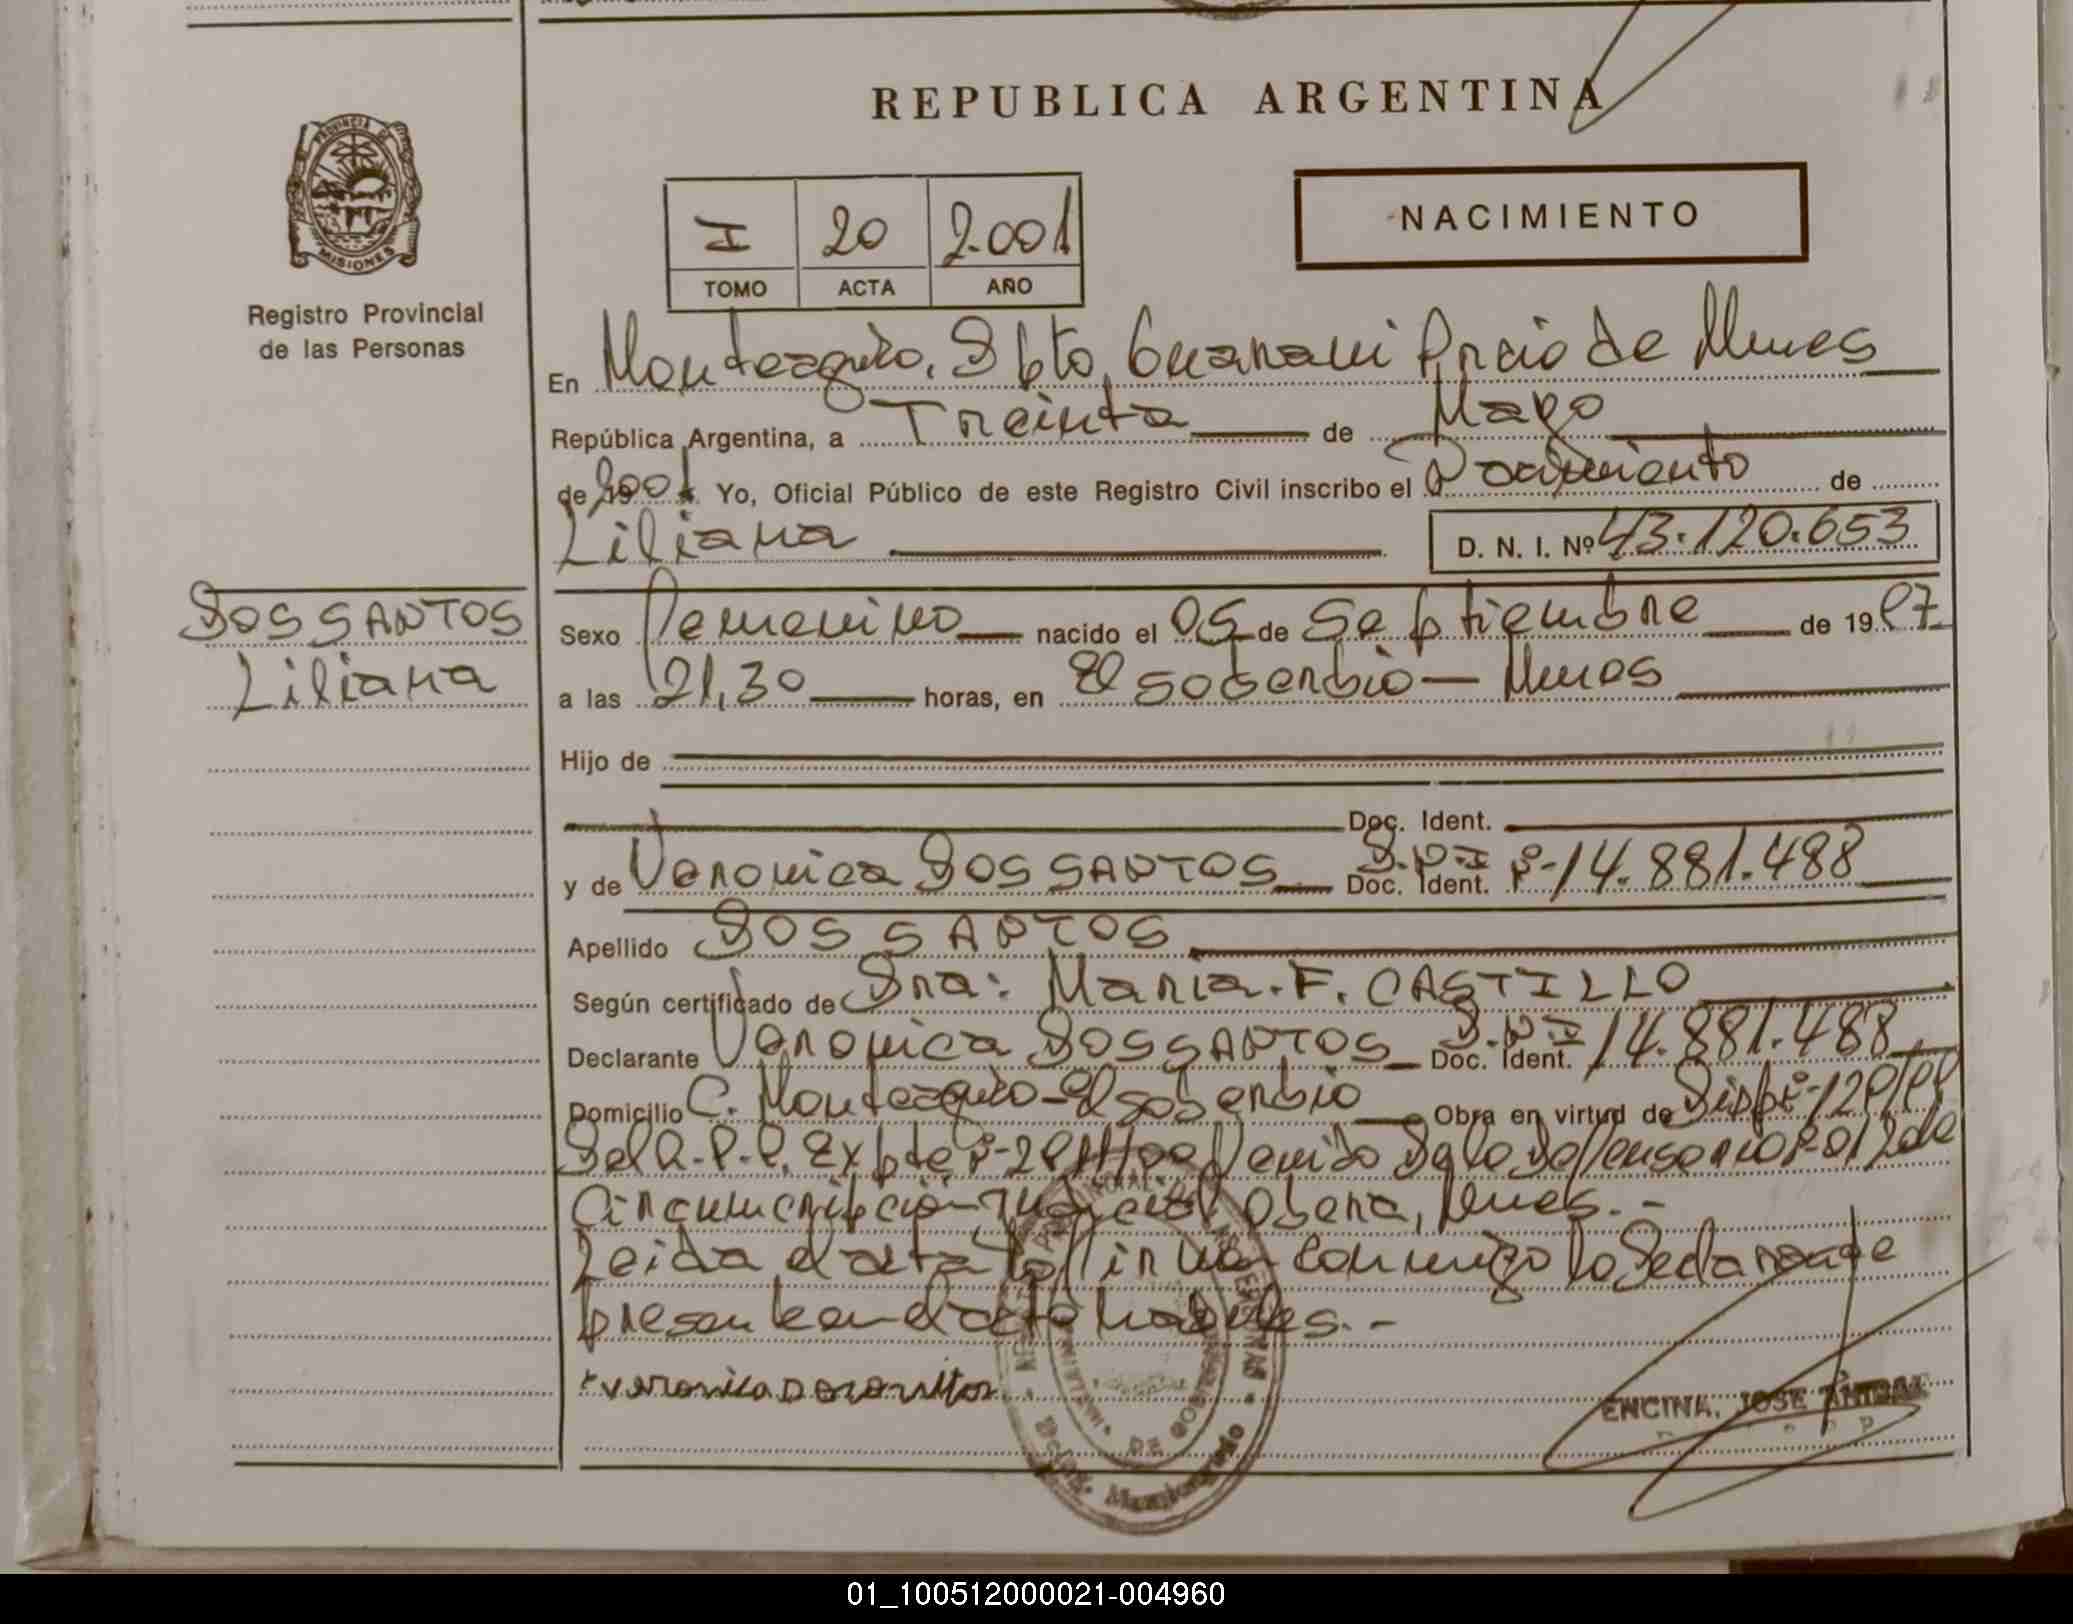 REPUBLICA ARGENTINA
PROVINCIA DE
MISIONES
Registro Provincial
de las Personas
I 20 2.001
TOMO ACTA AÑO
NACIMIENTO
En Monteagudo, Dpto, Guarani Pncia de Mnes
República Argentina, a Treinta de Mayo
de 2001 Yo, Oficial Público de este Registro Civil inscribo el Nacimiento de
Liliana D. N. I. Nº 43.120.653
DOS SANTOS
Liliana
Sexo Femenino nacido el 05 de Septiembre de 19 97
a las 21,30 horas, en El soberbio - Mnes
Hijo de
Doc. Ident.
y de Veronica DOS SANTOS D.N.I Nº 14.881.488
Doc. Ident.
Apellido DOS SANTOS
Según certificado de Sra: Maria. F. CASTILLO
Declarante Veronica DOS SANTOS D.N.I 14.881.488
Doc. Ident.
Domicilio C. Monteagudo - El soberbio Obra en virtud de Disp. Nº
Del R.P.P. Expte Nº de
Circunscripción Judicial Obera, Mnes.-
Leida el acta la firma conmigo la Declarante
presente en el acto
Veronica
ENCINA, JOSE ANIBAL
01_100512000021-004960